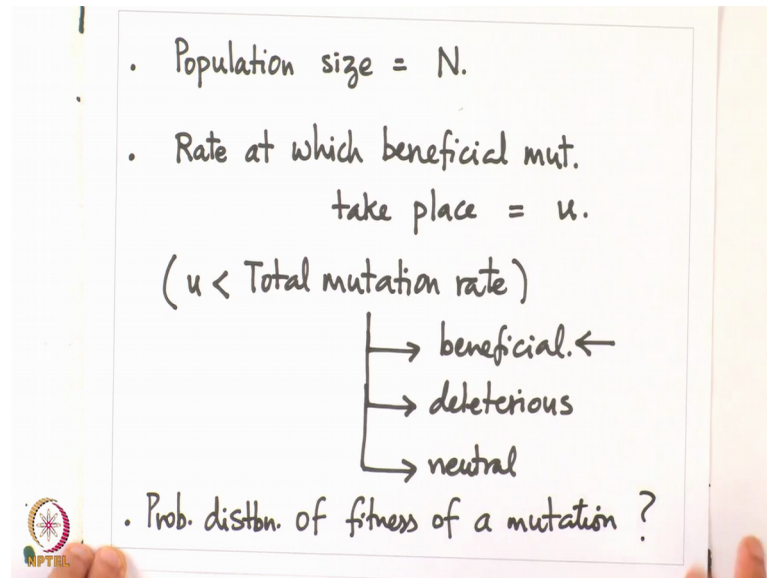 . Population size = N.
. Rate at which beneficial mut.
take place = u.
(u < Total mutation rate)
→ beneficial. ←
→ deleterious
→ neutral
. Prob. distbn. of fitness of a mutation ?
NPTEL